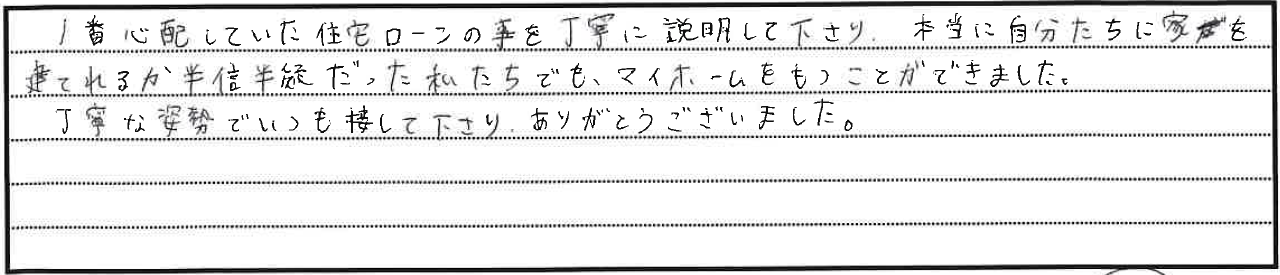 1番心配していた住宅ローンの事を丁寧に説明して下さり、本当に自分たちに家を
建てれるか半信半疑だった私たちでも、マイホームをもつことができました。
丁寧な姿勢でいつも接して下さり、ありがとうございました。